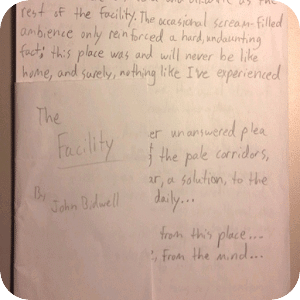 rest of the facility. The occasional scream-filled
ambience only reinforced a hard, undaunting
fact; this place was and will never be like
home, and surely, nothing like I've experienced
The
Facility
By John Bidwell
er unanswered plea
the pale corridors,
er, a solution, to the
daily...
from this place...
from the mind...